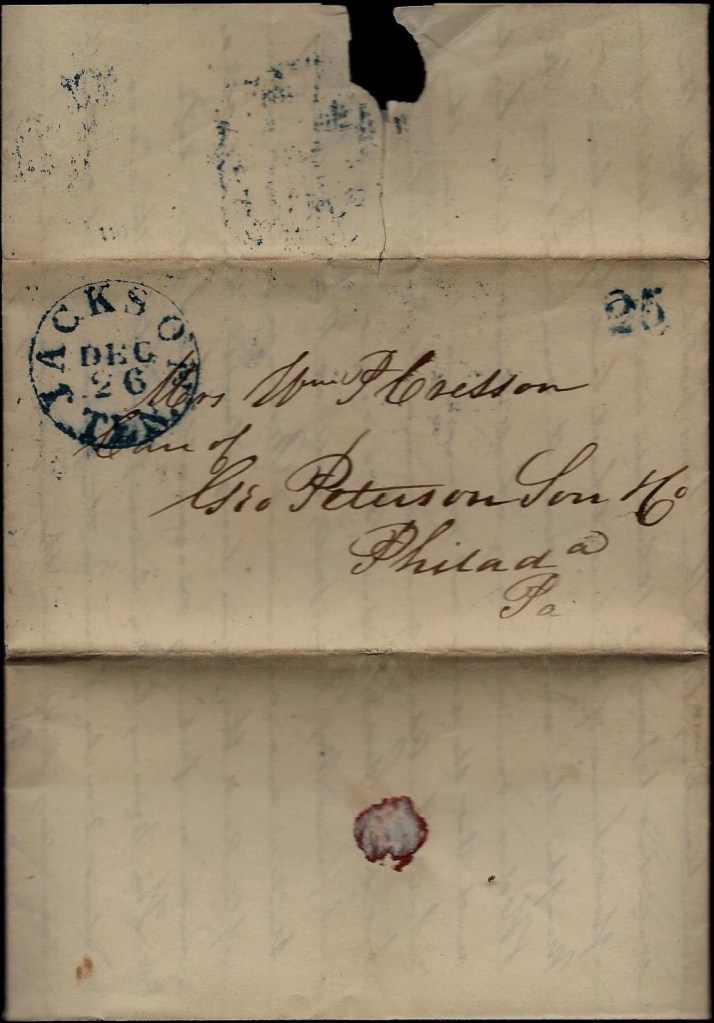 JACKSON
TEN.
DEC
26
25
Mrs Wm P Cresson
Care of
Geo Peterson Son & Co
Philada
Pa